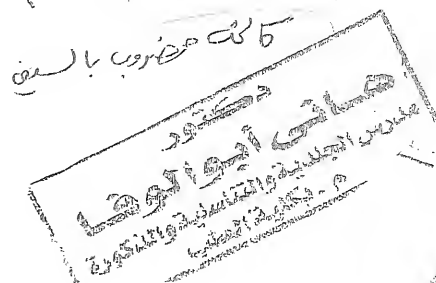 كالخه مضروب بالسيف
دكتور
هانى أبوالوفا
مدرس الجلدية والتناسلية والذكورة